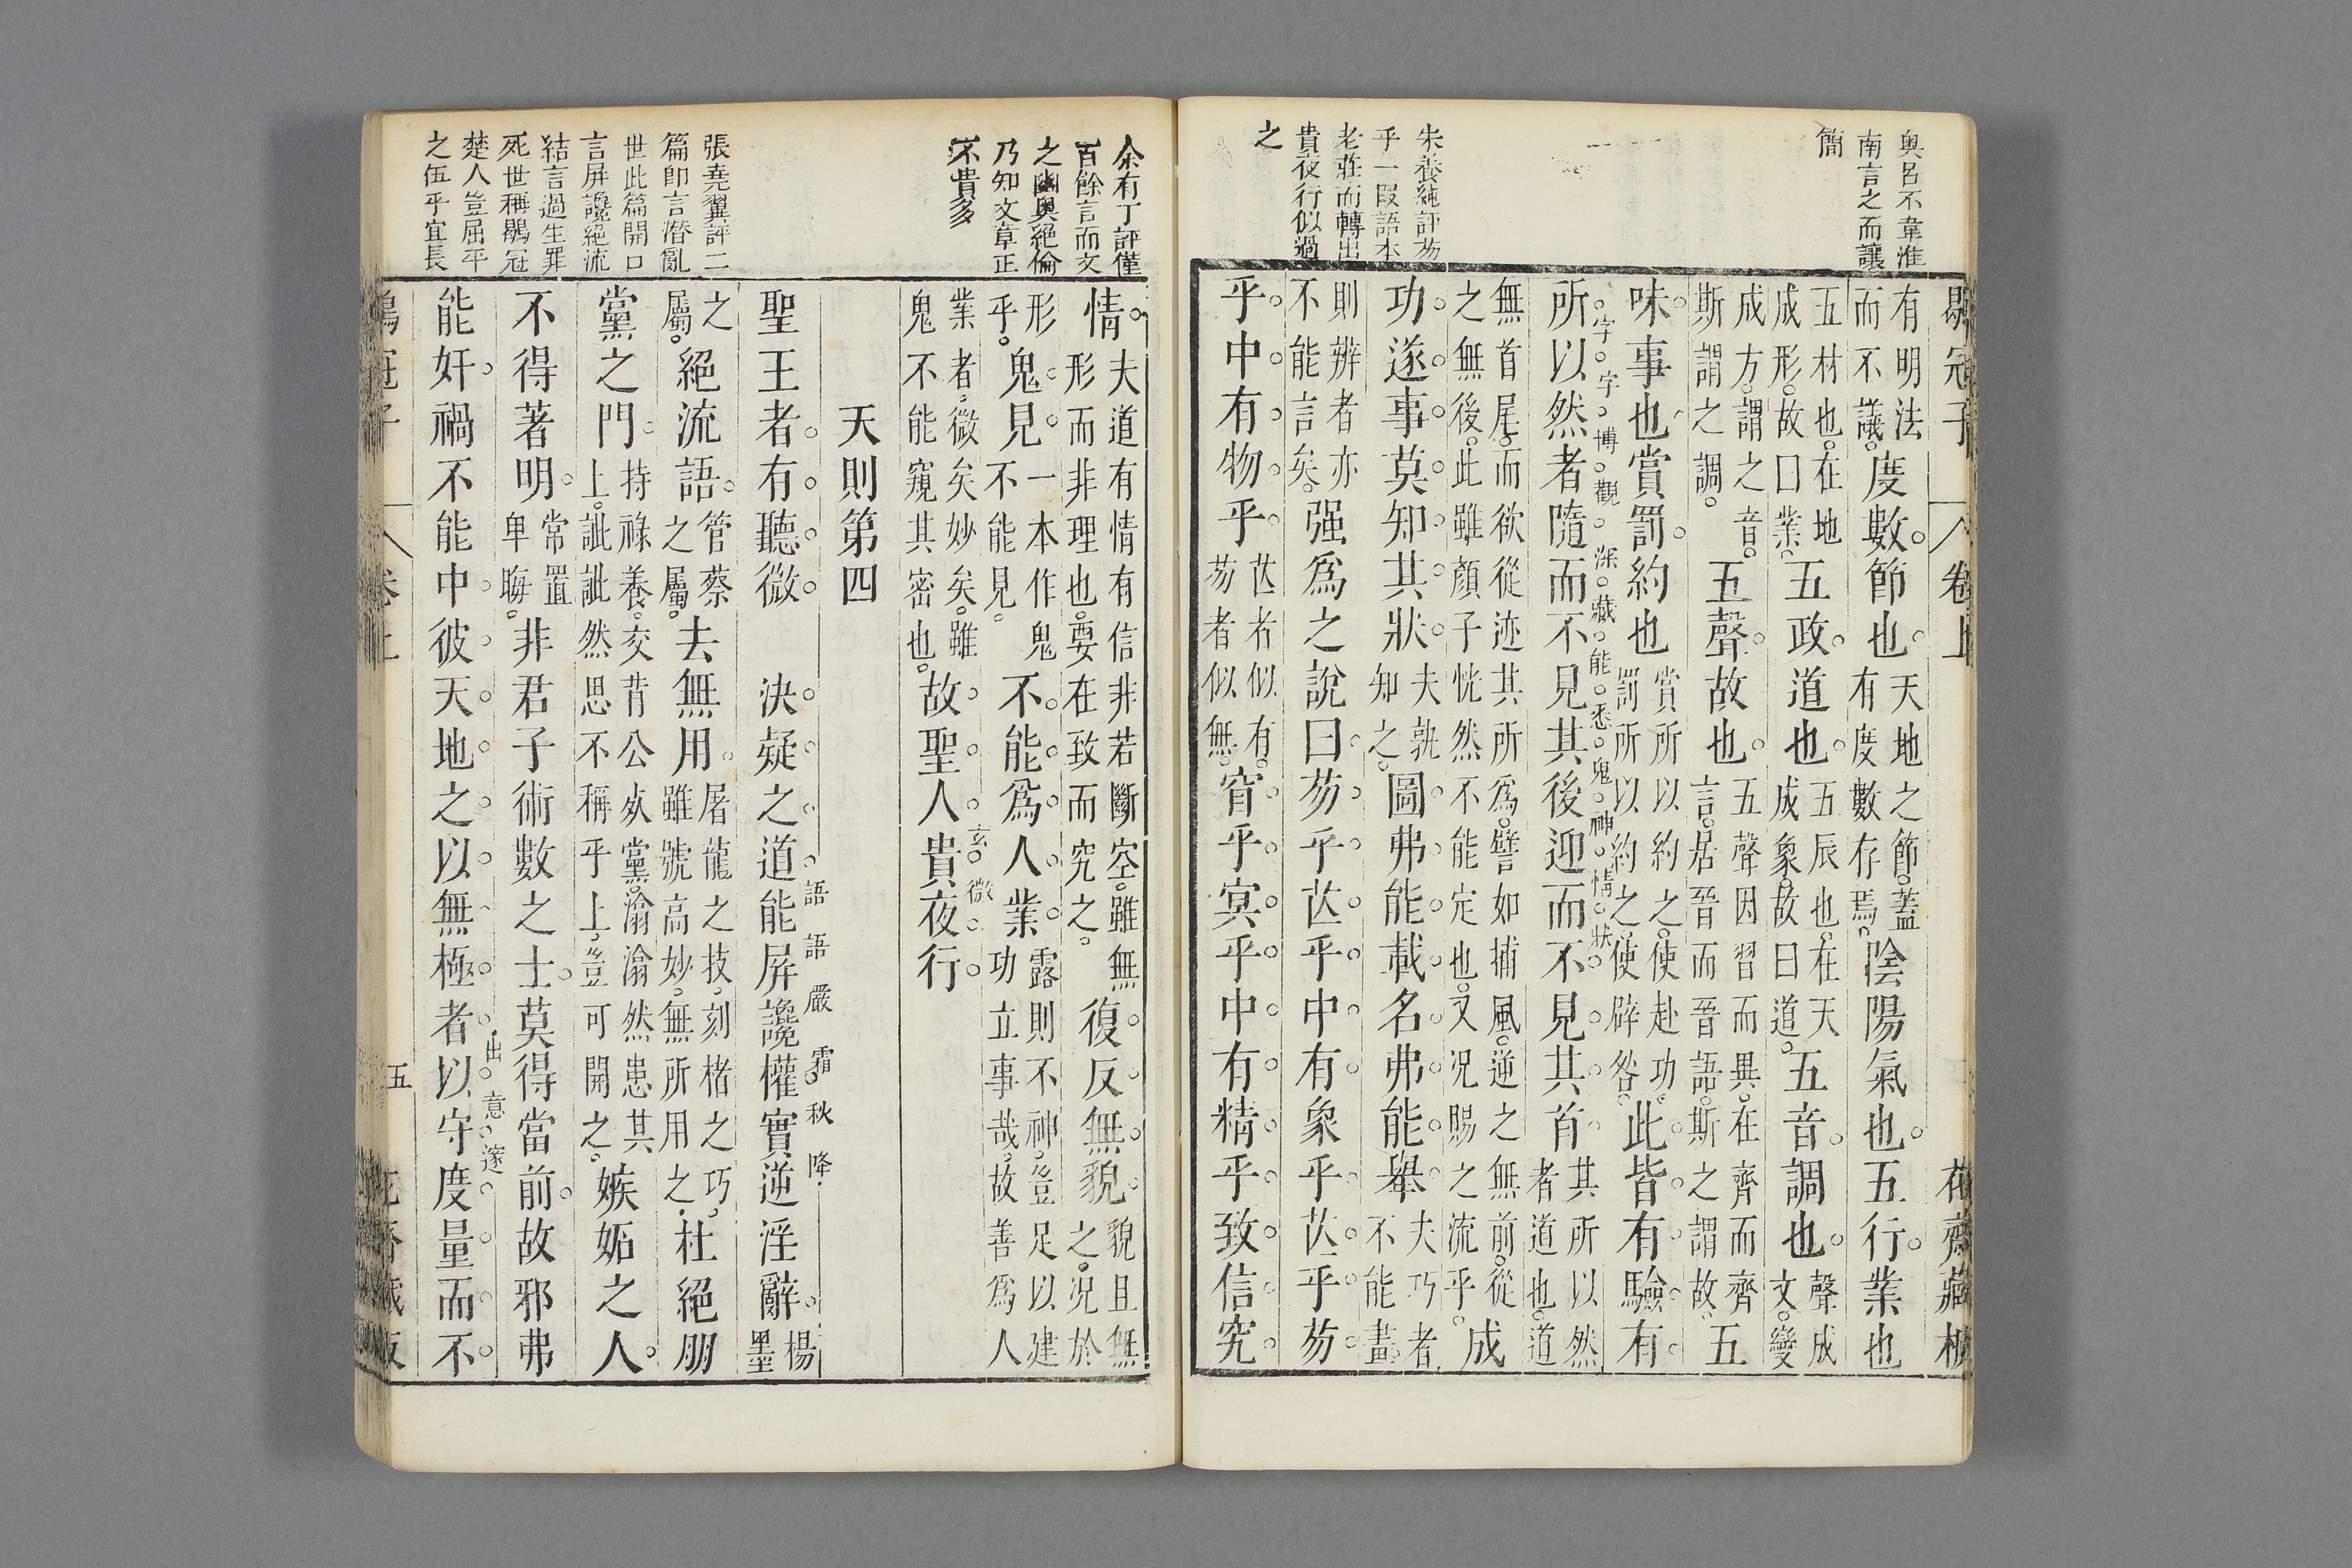 奥呂不韋淮
南言之而讓
簡
朱養純評芴
乎一叚語本
老莊而轉出
貴夜行似過
之
鶡冠子 卷上 花齋藏板
有明法而不議。度數。節也。天地之節。蓋有度數存焉。陰陽氣也。五行。業也
五材也。在地成形。故曰業。五政。道也。五辰也。在天成象。故曰道。五音。調也。聲成文。變
成方。謂之音。斯謂之調。五聲。故也。五聲因習而異。在齊而齊言。居晉而晉語。斯之謂故。五
味。事也。賞罰。約也賞所以約之。使赴功。罰所以約之。使辟咎。此皆有驗。有
字字博觀深藏能悉鬼神情狀
所以然者。隨而不見其後迎而不見其首其所以然者道也。道
無首尾。而欲從迹其所爲。譬如捕風。逆之無前。從之無後。此雖顔子恍然不能定也。又况賜之流乎。成
功遂事。莫知其狀。夫孰知之。圖弗能載名。弗能舉。夫巧者不能畫
則辨者亦不能言矣。强爲之說曰。芴乎芒乎。中有象乎。芒乎芴
乎。中有物乎。芒者似有。芴者似無。窅乎冥乎。中有精乎。致信究
余有丁評僅
百餘言而文
之幽奧絕倫
乃知文章正
不貴多
張堯翼評二
篇即言潛亂
世此篇開口
言屏讒絕流
結言過生罪
死世稱鶡冠
楚人豈屈平
之伍乎宜長
情。夫道有情有信。非若斷空。雖無形而非理也。要在致而究之。復反無貌。貌且無之。况於
形乎。鬼見。一本作鬼不能見。不能爲人業。露則不神。豈足以建功立事哉。故善爲人
業者。微矣妙矣。雖鬼不能窺其密也。故聖人貴夜行。
玄微
天則第四
語語嚴霜秋降
聖王者。有聽微決疑之道能屏讒權實逆淫辭。楊墨
之屬。絕流語。管蔡之屬。去無用。屠龍之技。刻楮之巧。雖號高妙。無所用之。杜絕朋
黨之門。持祿養交。昔公叔黨。滃滃然患其上。訿訿然思不稱乎上。豈可開之。嫉妬之人。
不得著明。常置卑晦。非君子術數之士。莫得當前。故邪弗
出意遂
能奸。禍不能中。彼天地之以無極者。以守度量。而不
鶡冠子 卷上 五 花齋藏板